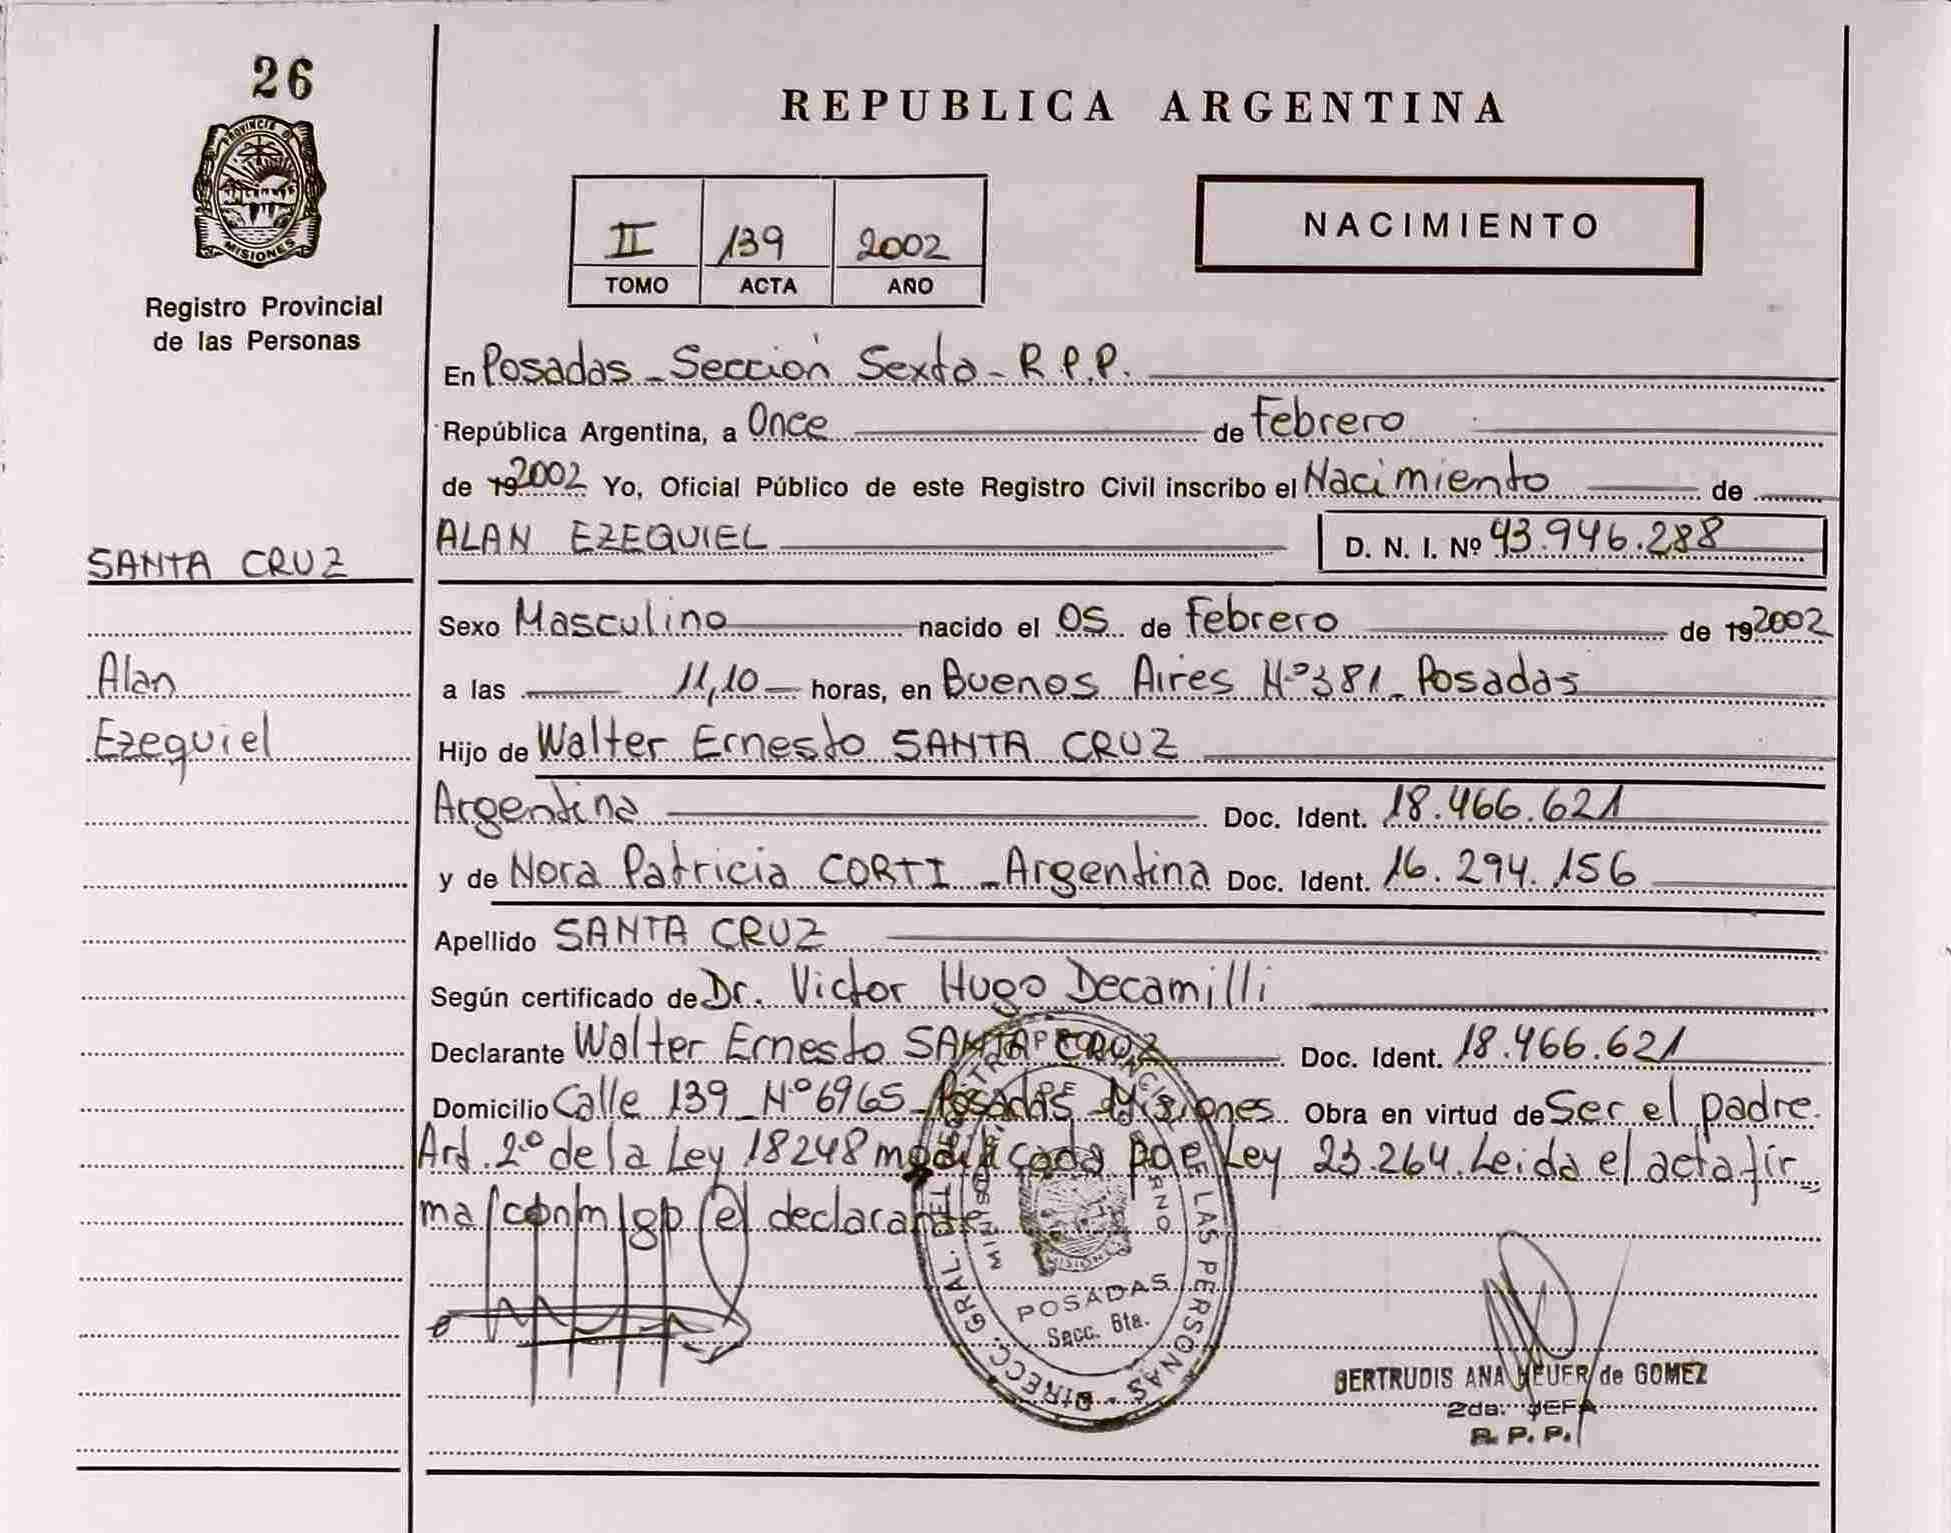 26
PROVINCIA DE
MISIONES
Registro Provincial
de las Personas
REPUBLICA ARGENTINA
II 139 2002
TOMO ACTA AÑO
NACIMIENTO
En Posadas - Sección Sexta - R.P.P.
República Argentina, a Once de Febrero
de 19 2002 Yo, Oficial Público de este Registro Civil inscribo el Nacimiento de
ALAN EZEQUIEL D. N. I. Nº 43.946.288
SANTA CRUZ
Alan
Ezequiel
Sexo Masculino nacido el 05 de Febrero de 19 2002
a las 11,10 horas, en Buenos Aires Nº 381 - Posadas
Hijo de Walter Ernesto SANTA CRUZ
Argentina Doc. Ident. 18.466.621
y de Nora Patricia CORTI - Argentina Doc. Ident. 16.294.156
Apellido SANTA CRUZ
Según certificado de Dr. Victor Hugo Decamilli
Declarante Walter Ernesto SANTA CRUZ Doc. Ident. 18.466.621
Domicilio Calle 139 - Nº 6965 - Posadas - Misiones Obra en virtud de Ser el padre.
Art. 2º de la Ley 18248 modificada por Ley 23.264. Leida el acta fir
ma conmigo el declarante
DIRECC. GRAL. DE LAS PERSONAS
POSADAS
Secc. 6ta.
GERTRUDIS ANA HEUER de GOMEZ
2da. JEFA
R. P. P.